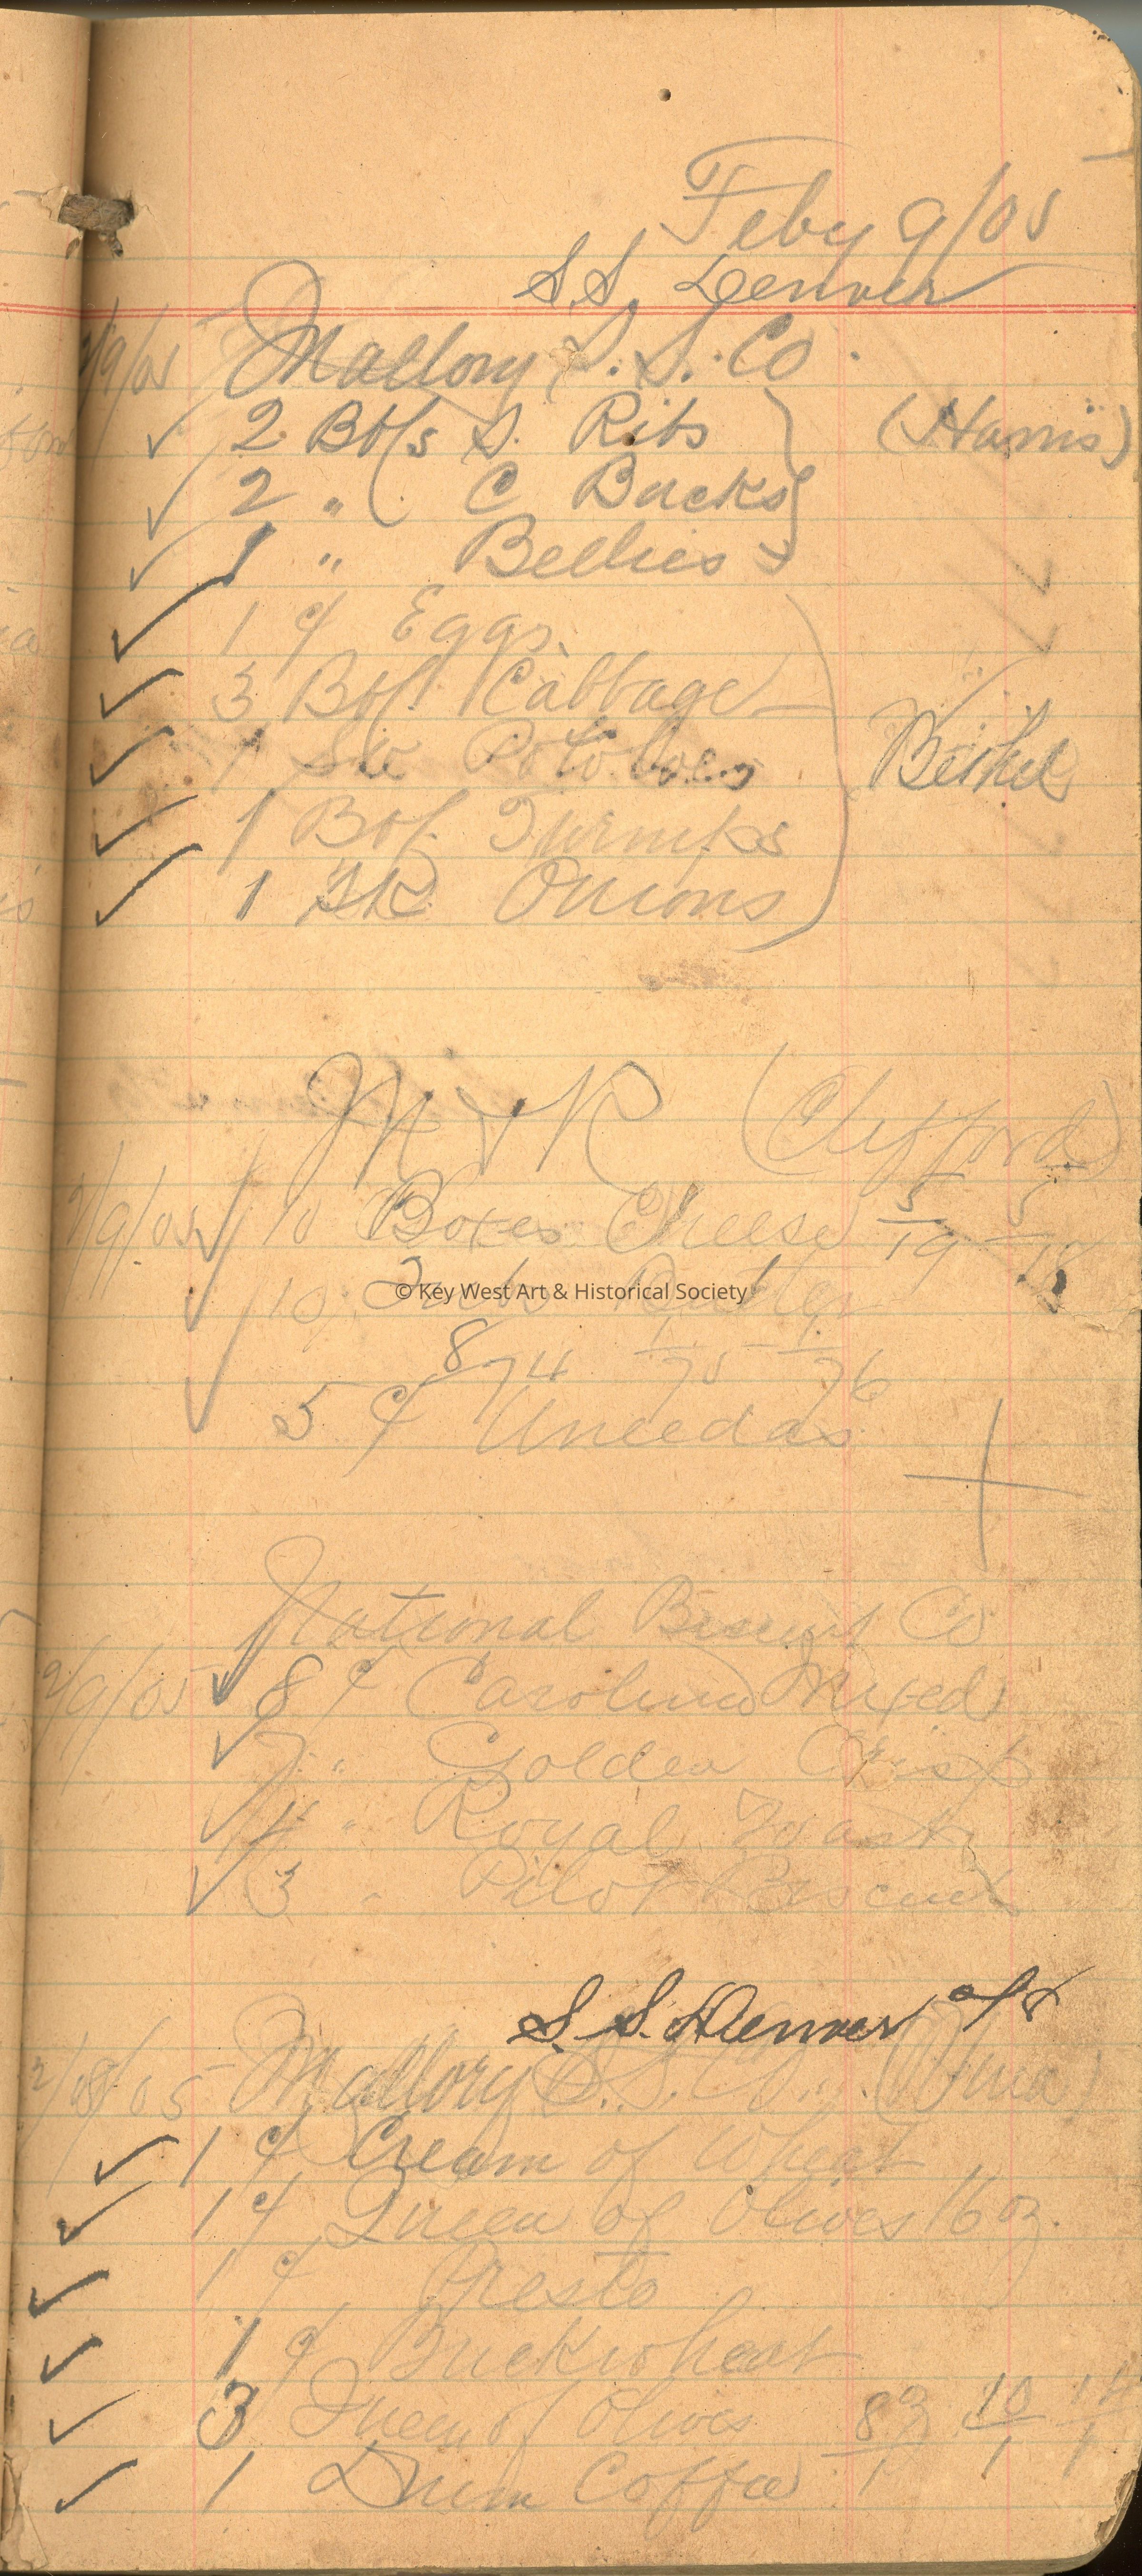 Feby 9/05
S.S. Denver
2/9/05 Mallory S. S. Co.
2 Bbls S. Ribs (Harris)
2 " C Backs
1 " Bellies
1 c/ Eggs
3 Bbl. Cabbage
1 Potatoes Bethel
1 Bbl. Turnips
1 SK Onions
M & R (Clifford)
2/9/05 10 Boxes Cheese 5/19
10 Tubs Butter
© Key West Art & Historical Society
8/74 1/75 - 1/76
5 c/ Uneedas
National Biscuit Co
2/9/05 8 c/ Carolina Mixed
7 " Golden Crisp
4 " Royal Toast
3 " Pilot Biscuit
S. S. Denver
2/ /05 Mallory S.S. Co.
1 c/ Cream of Wheat
1 c/ Queen of Olives 16 oz.
1 c/ Presto
1 c/ Buckwheat
3 Queen of Olives 10/1
1 Drum Coffee